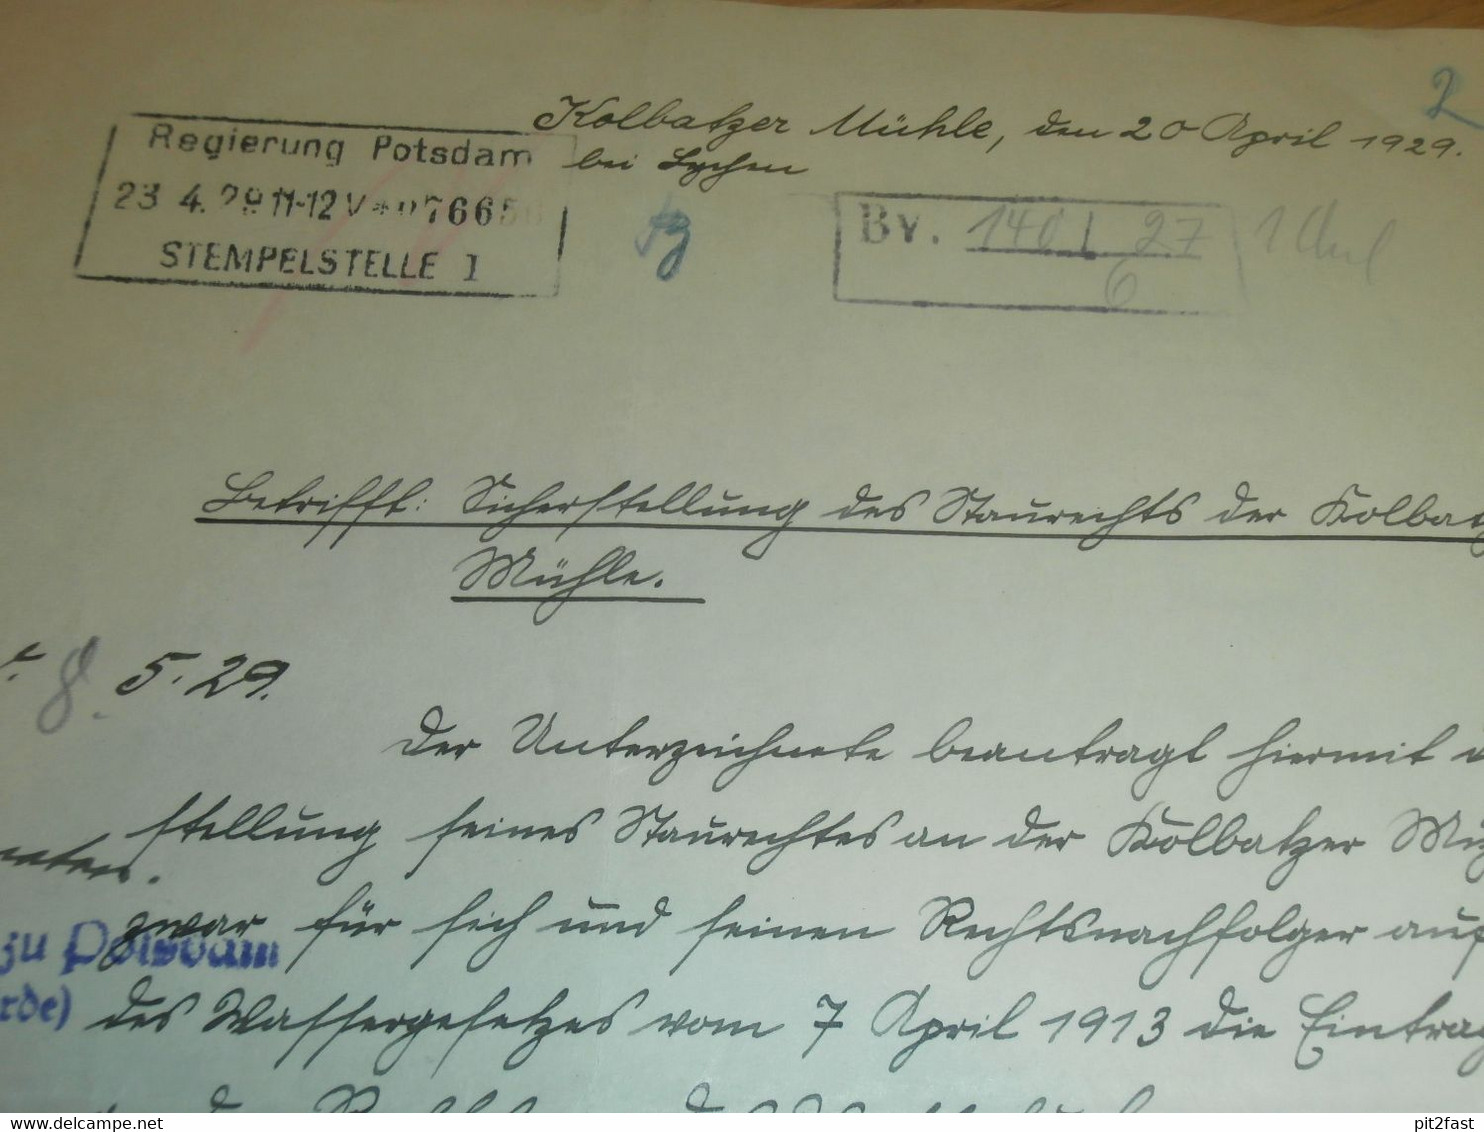 2
Kolbatzer Mühle, den 20 April 1929.
bei Lychen
Regierung Potsdam
23 4. 29 11-12 V * 07665
STEMPELSTELLE 1
Bv. 1401 27
6
Betrifft: Sicherstellung des Staurechts der Kolbatz
Mühle.
8. 5. 29.
Der Unterzeichnete beantragt hiermit d
stellung seines Staurechtes an der Kolbatzer Mü
zwar für sich und seinen Rechtsnachfolger auf
zu Potsdam
rde)
des Wassergesetzes vom 7 April 1913 die Eintrag
www.delcampe.net
pit2fast